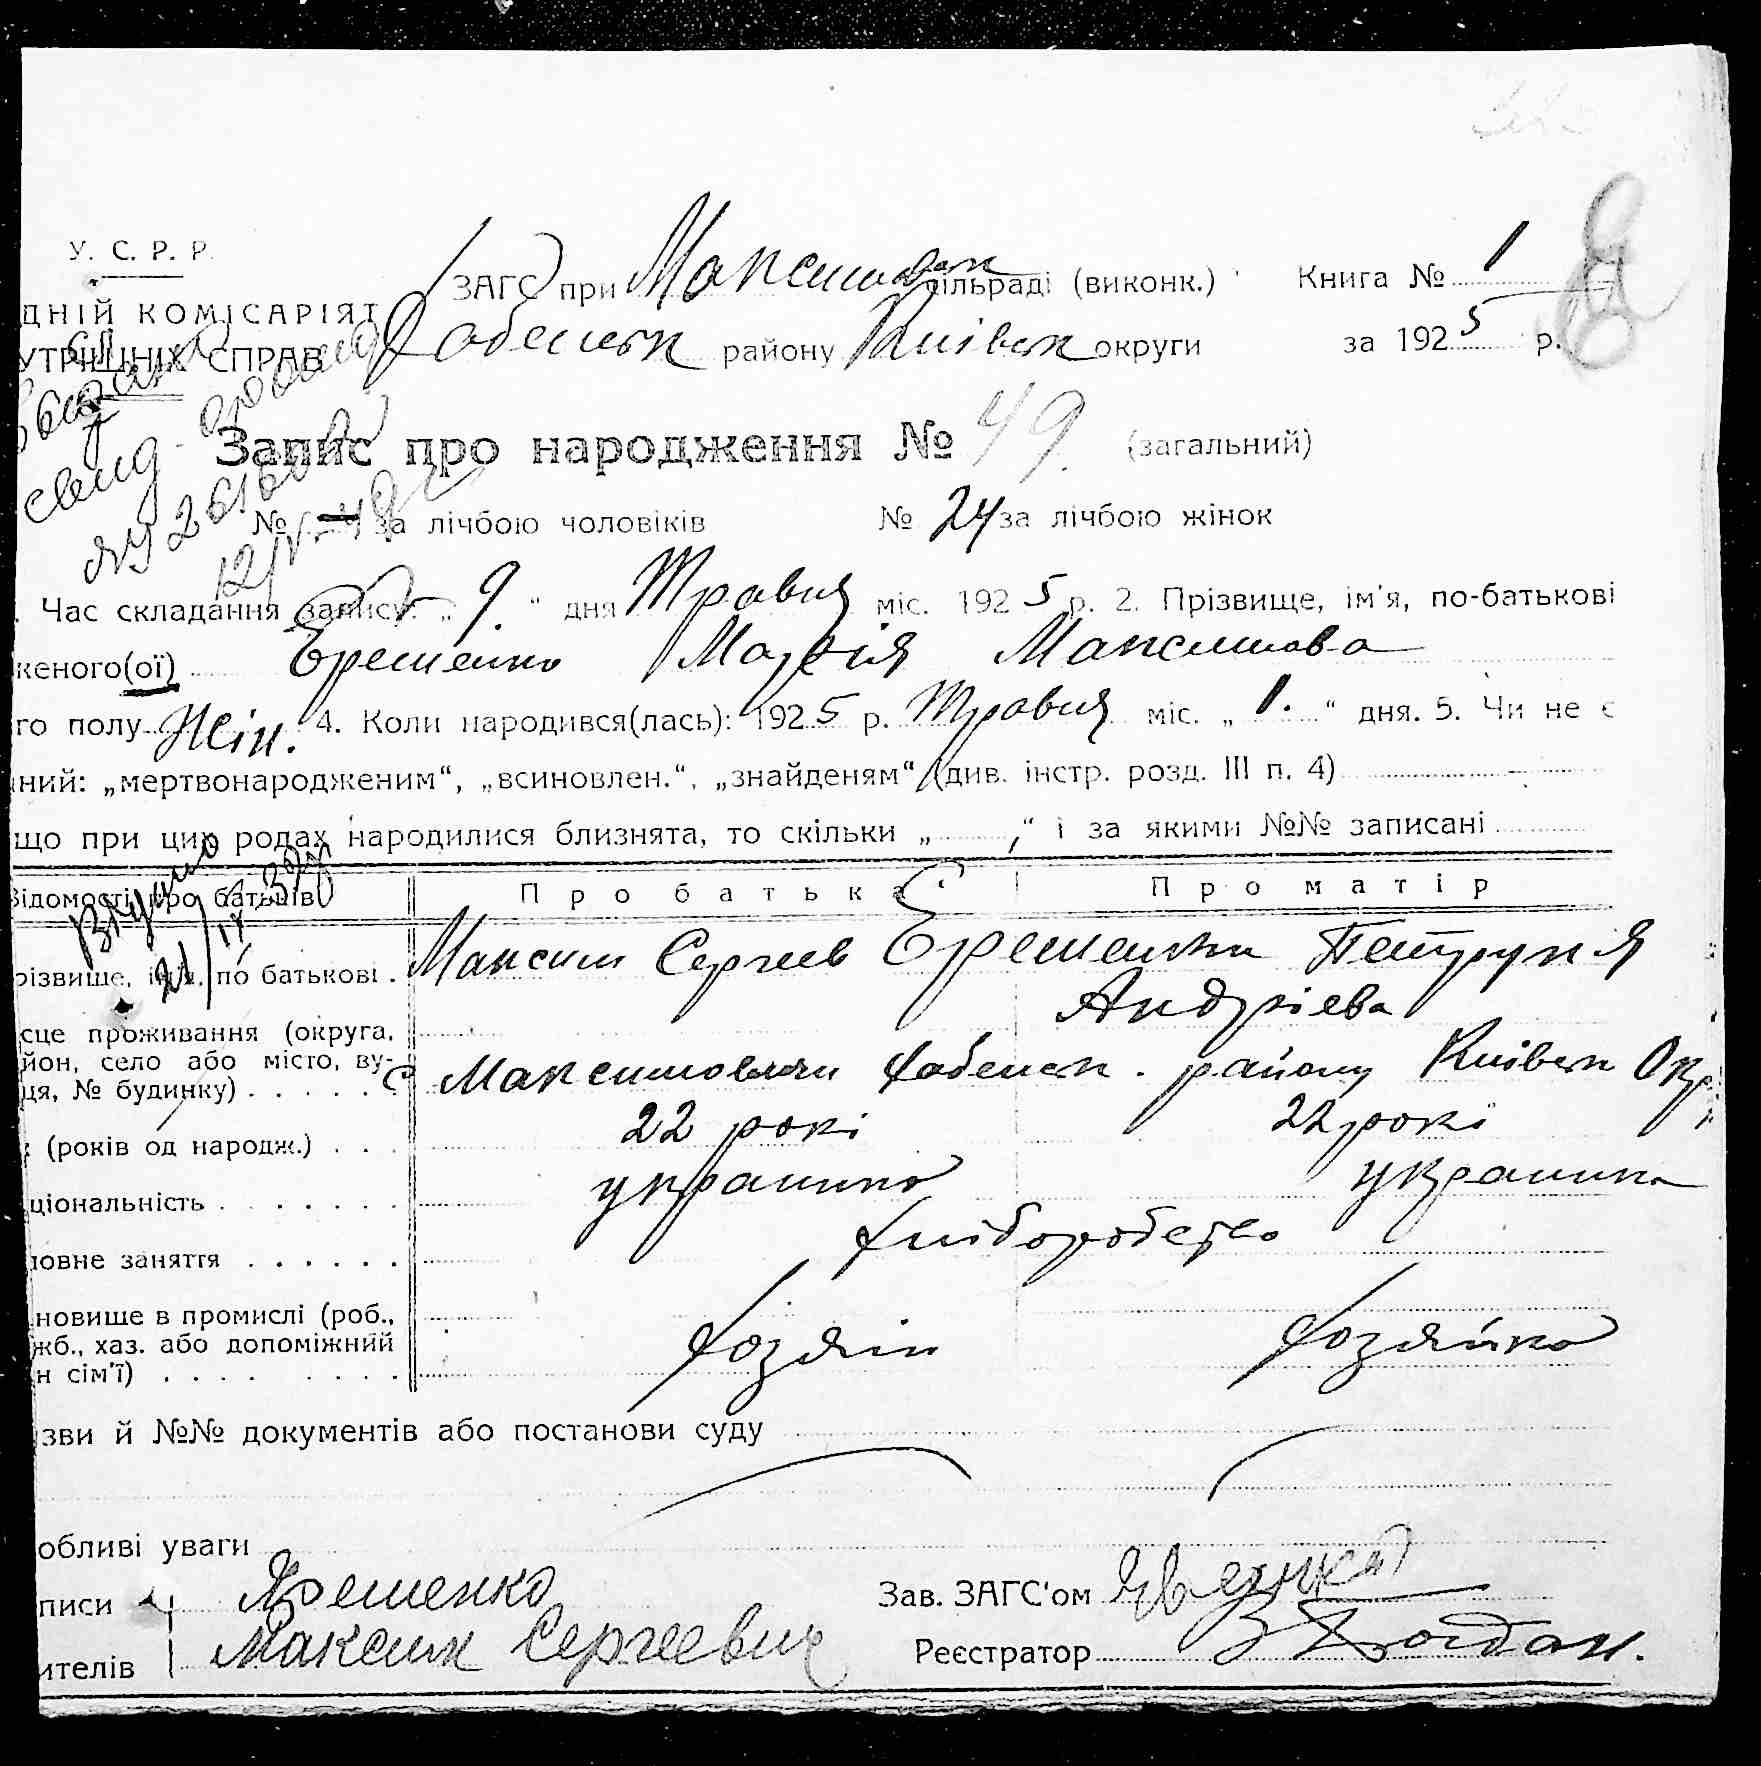 У. С. Р. Р.
ДНІЙ КОМІСАРІЯТ
УТРІШНІХ СПРАВ
ЗАГС при Максимовск сільраді (виконк.) Книга № 1
Хабенськ району Київськ округи за 1925 р.
свид.
12/V-49
Запис про народження № 49 (загальний)
№ за лічбою чоловіків № 24 за лічбою жінок
. Час складання запису: „ 9 “ дня Травня міс. 1925 р. 2. Прізвище, ім'я, по-батькові
женого(ої) Ерешенко Марія Максимова
го полу Жін. 4. Коли народився(лась): 1925 р. Травня міс. „ 1. “ дня. 5. Чи не є
ний: „мертвонародженим“, „всиновлен.“, „знайденям“ (див. інстр. розд. III п. 4)
що при цих родах народилися близнята, то скільки „ “ і за якими №№ записані
Відомості про батьків Про батька Про матір
Видано
21/IX
різвище, ім'я, по батькові . Максим Сергеев Ерешенки Петруня
Андрієва
сце проживання (округа,
йон, село або місто, ву-
ця, № будинку) . . . . . с Максимовичи Хабенск. району Київськ Окр
(років од народж.) . . . 22 рокі 22 рокі
ціональність . . . . . . . украинец украинка
ловне заняття . . . . . . хліборобство
новище в промислі (роб.,
жб., хаз. або допоміжний
н сім'ї) . . . . . . . . хозяін хозяйка
зви й №№ документів або постанови суду
обливі уваги
писи Ярешенко Зав. ЗАГС'ом
ителів Максим Сергеевич Реєстратор В Богдан.